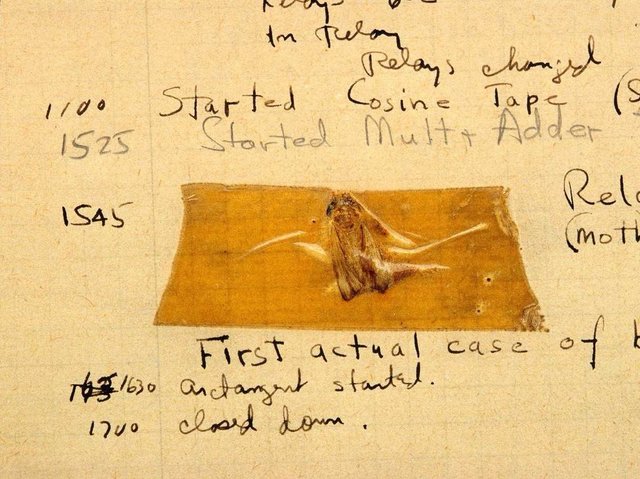 Relays
In Relay
Relays changed
1100 Started Cosine Tape (S
1525 Started Mult + Adder
1545 Rela
(moth
First actual case of b
1630 arctangent started.
1700 closed down.